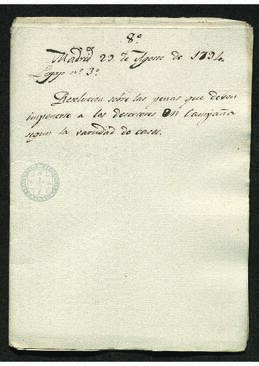 8º
Madrid 23 de Agosto de 1794
Legajo nº 3º
Resolucion sobre las penas que deven
imponerse a los desertores en Campaña
segun la variedad de casos.